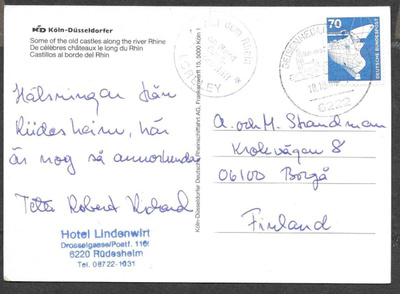 KD Köln-Düsseldorfer
Some of the old castles along the river Rhine
De célèbres châteaux le long du Rhin
Castillos al borde del Rhin
Hälsningar från
Rüdesheim, här
är nog så annorlunda
Robert
Hotel Lindenwirt
Drosselgasse/Postf. 1161
6220 Rüdesheim
Tel. 06722-1031
Köln-Düsseldorfer Deutsche Rheinschiffahrt AG, Frankenwerft 15, 5000 Köln 1
LORELEY
70
DEUTSCHE BUNDESPOST
6222
A. och M. Strandman
Krokvägen 8
06100 Borgå
Finland